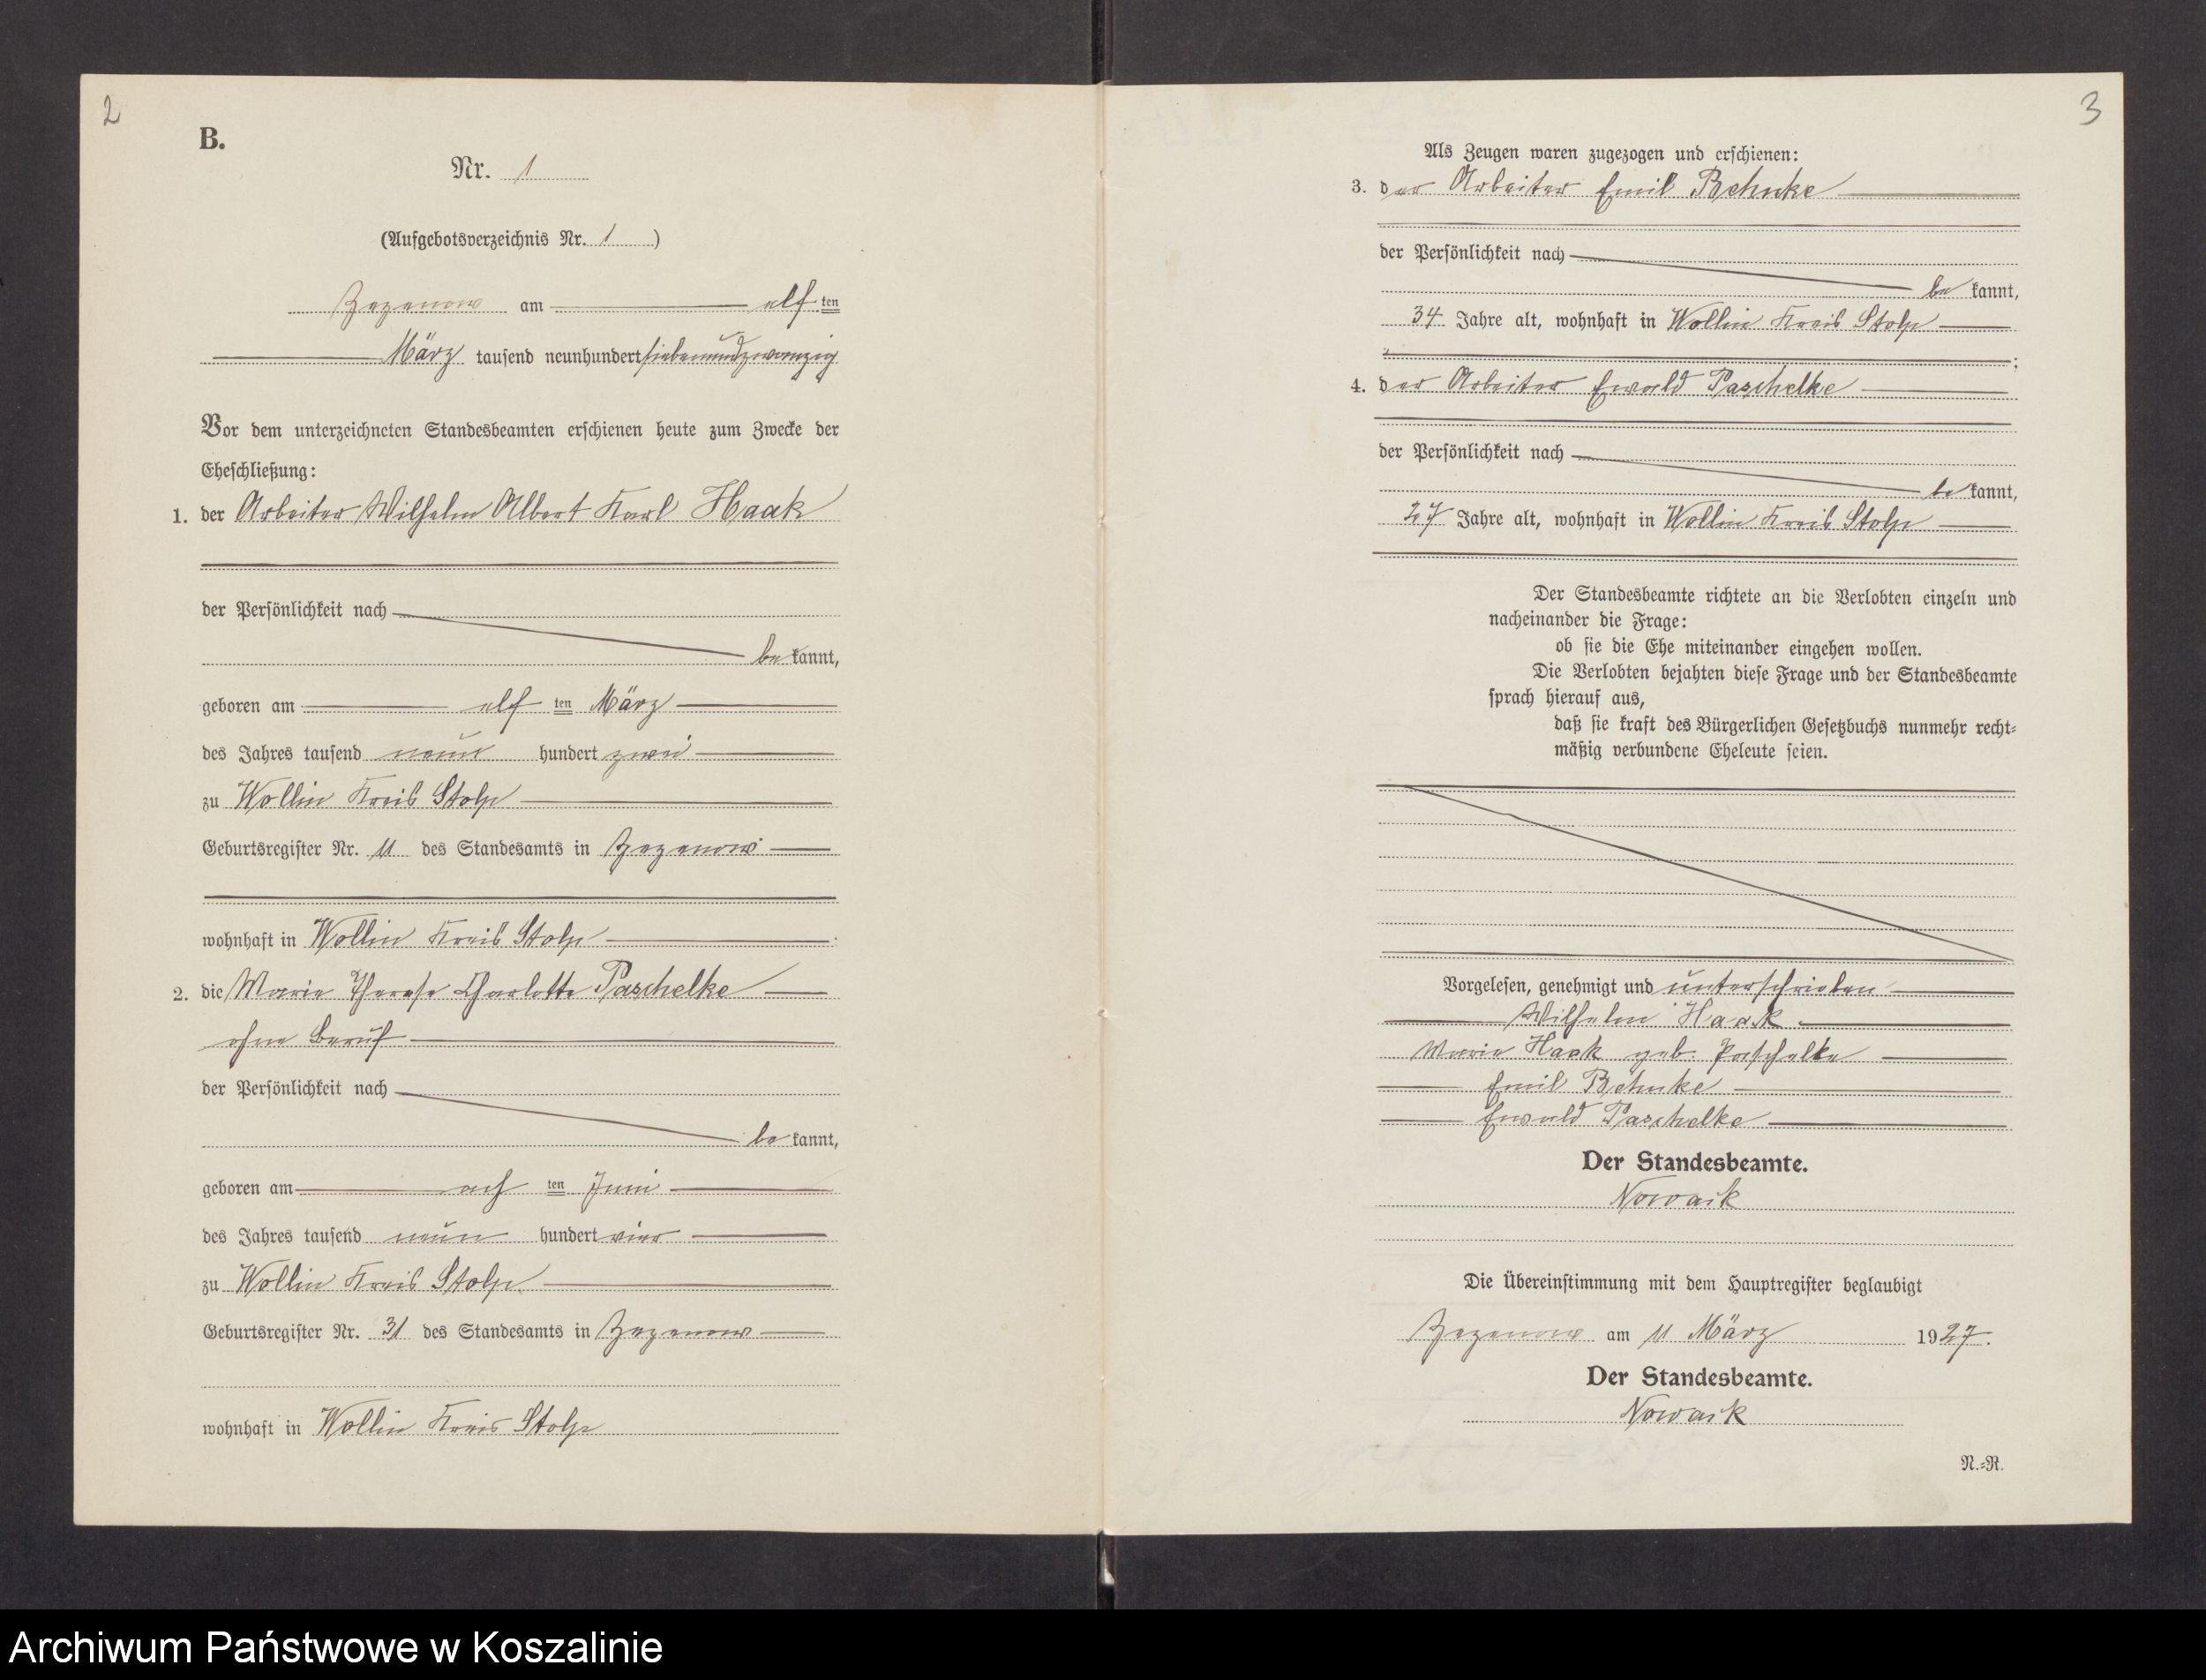 2
B.
Nr. 1
(Aufgebotsverzeichnis Nr. 1)
Zezenow am elf ten
März tausend neunhundert siebenundzwanzig
Vor dem unterzeichneten Standesbeamten erschienen heute zum Zwecke der
Eheschließung:
1. der Arbeiter Wilhelm Albert Karl Haak
der Persönlichkeit nach
be kannt,
geboren am elf ten März
des Jahres tausend neun hundert zwei
zu Wollin Kreis Stolp
Geburtsregister Nr. 11 des Standesamts in Zezenow
wohnhaft in Wollin Kreis Stolp.
2. die Marie Therese Charlotte Paschelke
ohne Beruf
der Persönlichkeit nach
be kannt,
geboren am ach ten Juni
des Jahres tausend neun hundert vier
zu Wollin Kreis Stolp
Geburtsregister Nr. 31 des Standesamts in Zezenow
wohnhaft in Wollin Kreis Stolp
3
Als Zeugen waren zugezogen und erschienen:
3. der Arbeiter Emil Behnke
der Persönlichkeit nach
be kannt,
34 Jahre alt, wohnhaft in Wollin Kreis Stolp
;
4. der Arbeiter Ewald Paschelke
der Persönlichkeit nach
be kannt,
27 Jahre alt, wohnhaft in Wollin Kreis Stolp
Der Standesbeamte richtete an die Verlobten einzeln und
nacheinander die Frage:
ob sie die Ehe miteinander eingehen wollen.
Die Verlobten bejahten diese Frage und der Standesbeamte
sprach hierauf aus,
daß sie kraft des Bürgerlichen Gesetzbuchs nunmehr recht-
mäßig verbundene Eheleute seien.
Vorgelesen, genehmigt und unterschrieben
Wilhelm Haak
Marie Haak geb. Paschelke
Emil Behnke
Ewald Paschelke
Der Standesbeamte.
Nowack
Die Übereinstimmung mit dem Hauptregister beglaubigt
Zezenow am 11 März 1927.
Der Standesbeamte.
Nowack
N.-R.
Archiwum Państwowe w Koszalinie